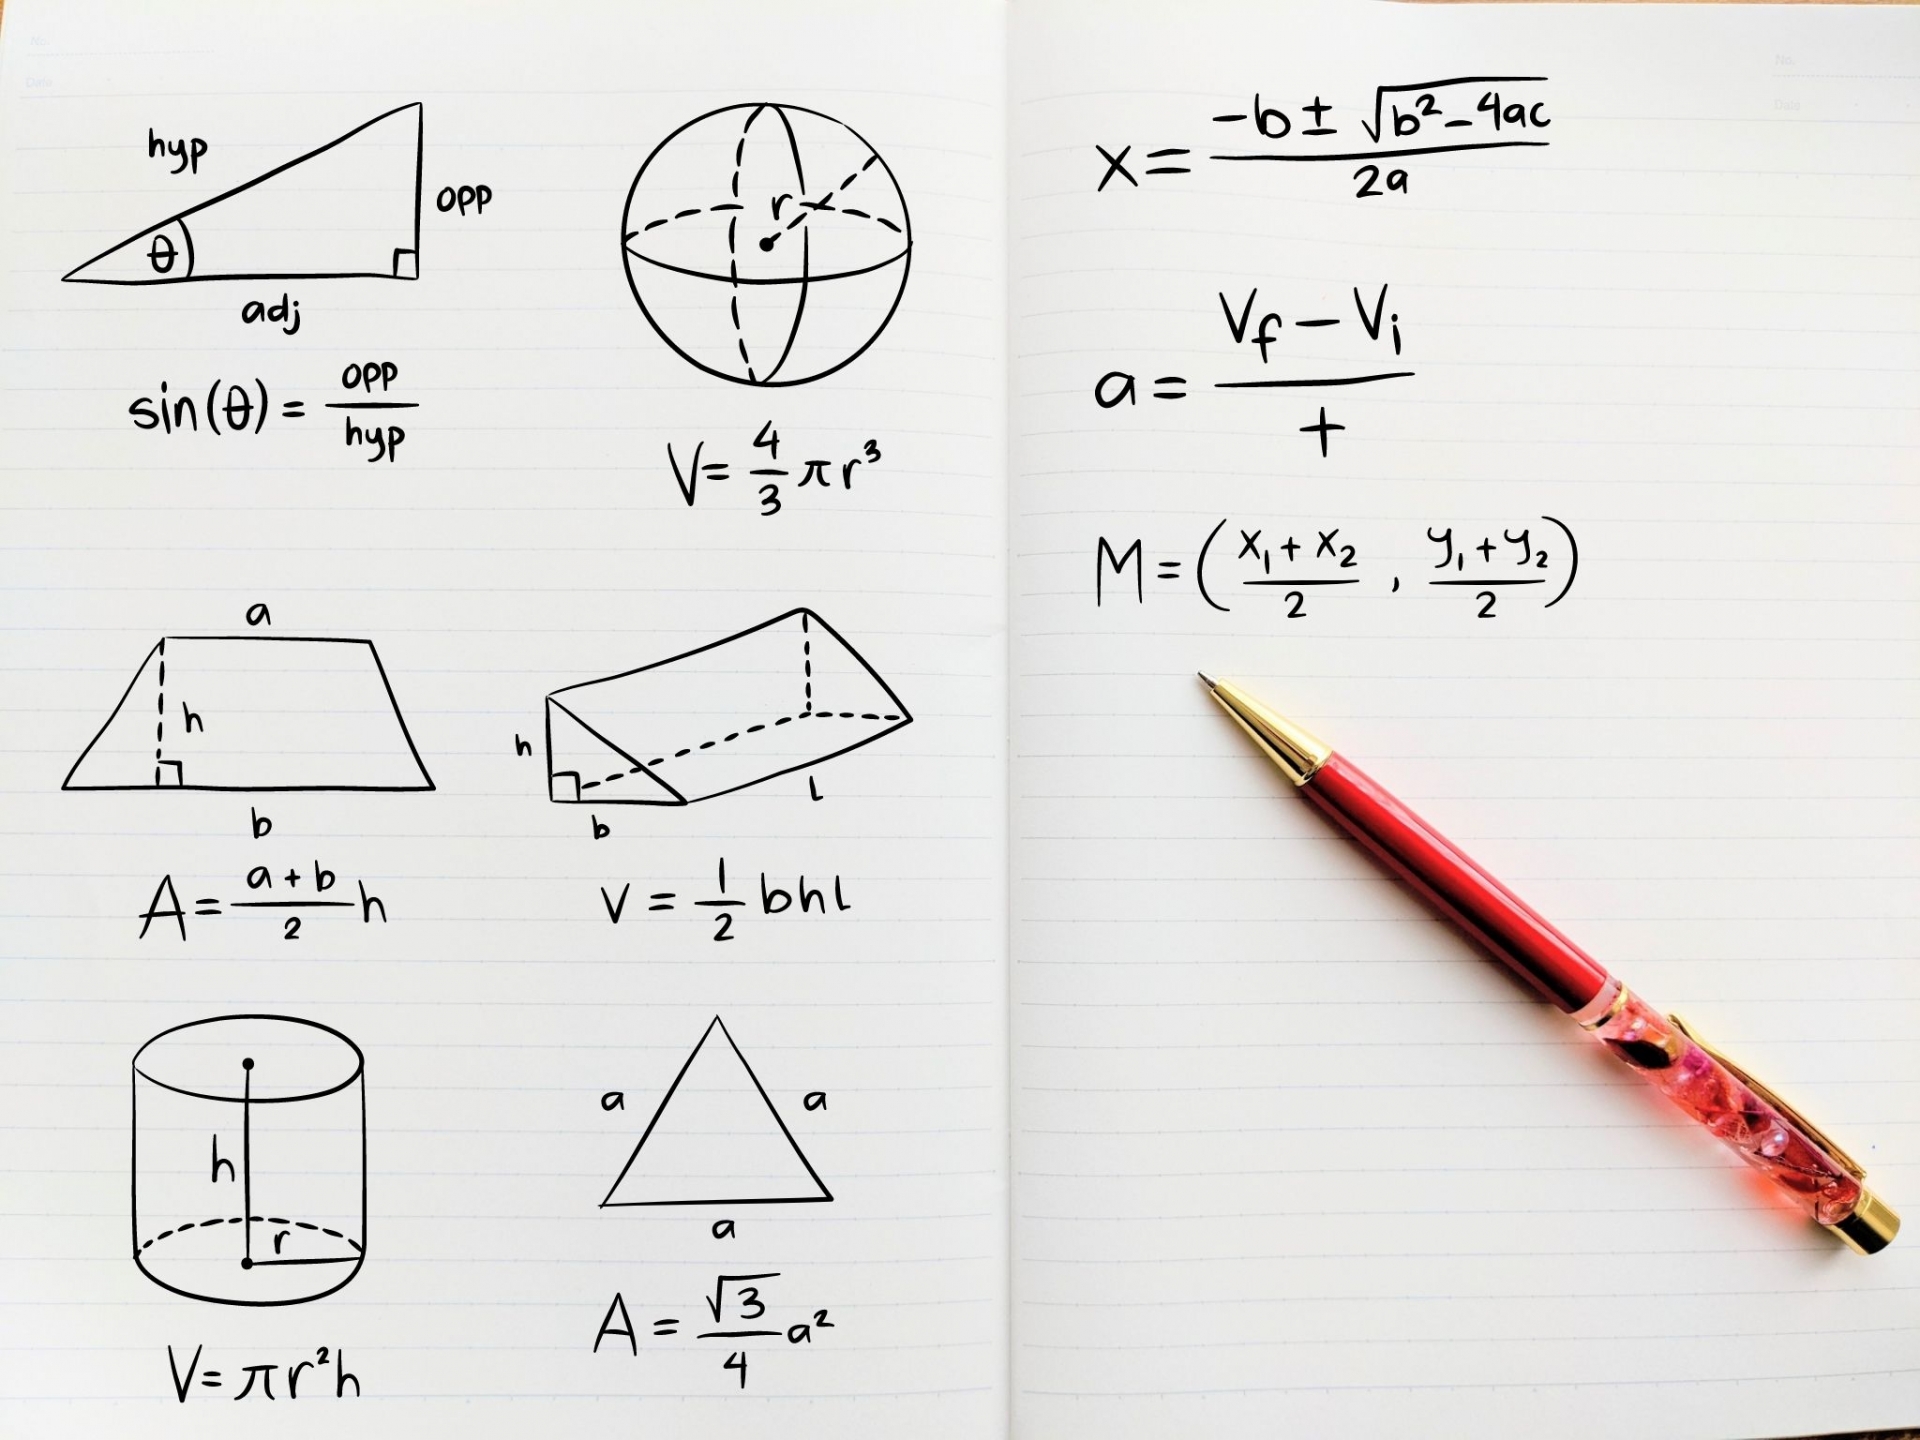 No.
Date
hyp
opp
θ
adj
sin(θ) = opp/hyp
r
V = 4/3 πr³
a
h
b
A = (a + b)/2 h
h
b
l
V = 1/2 bhl
h
r
V = πr²h
a
a
a
A = √3/4 a²
No.
Date
x = (-b ± √(b² - 4ac))/2a
a = (Vf - Vi)/t
M = ((x₁ + x₂)/2 , (y₁ + y₂)/2)